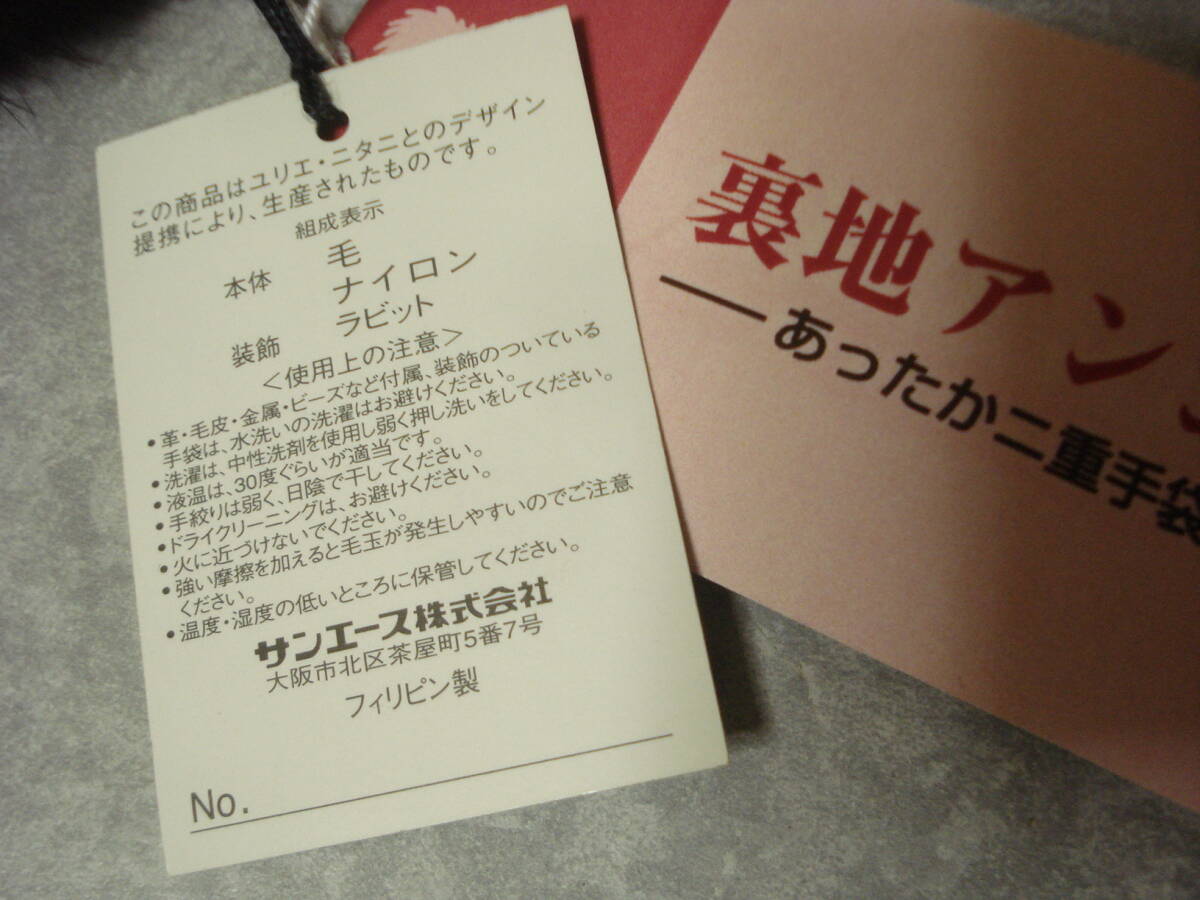 この商品はユリエ・ニタニとのデザイン
提携により、生産されたものです。
組成表示
本体 毛
ナイロン
装飾 ラビット
<使用上の注意>
•革・毛皮・金属・ビーズなど付属、装飾のついている
手袋は、水洗いの洗濯はお避けください。
•洗濯は、中性洗剤を使用し弱く押し洗いをしてください。
•液温は、30度ぐらいが適当です。
•手絞りは弱く、日陰で干してください。
•ドライクリーニングは、お避けください。
•火に近づけないでください。
•強い摩擦を加えると毛玉が発生しやすいのでご注意
ください。
•温度・湿度の低いところに保管してください。
サンエース株式会社
大阪市北区茶屋町5番7号
フィリピン製
No.
裏地アン
―あったか二重手袋